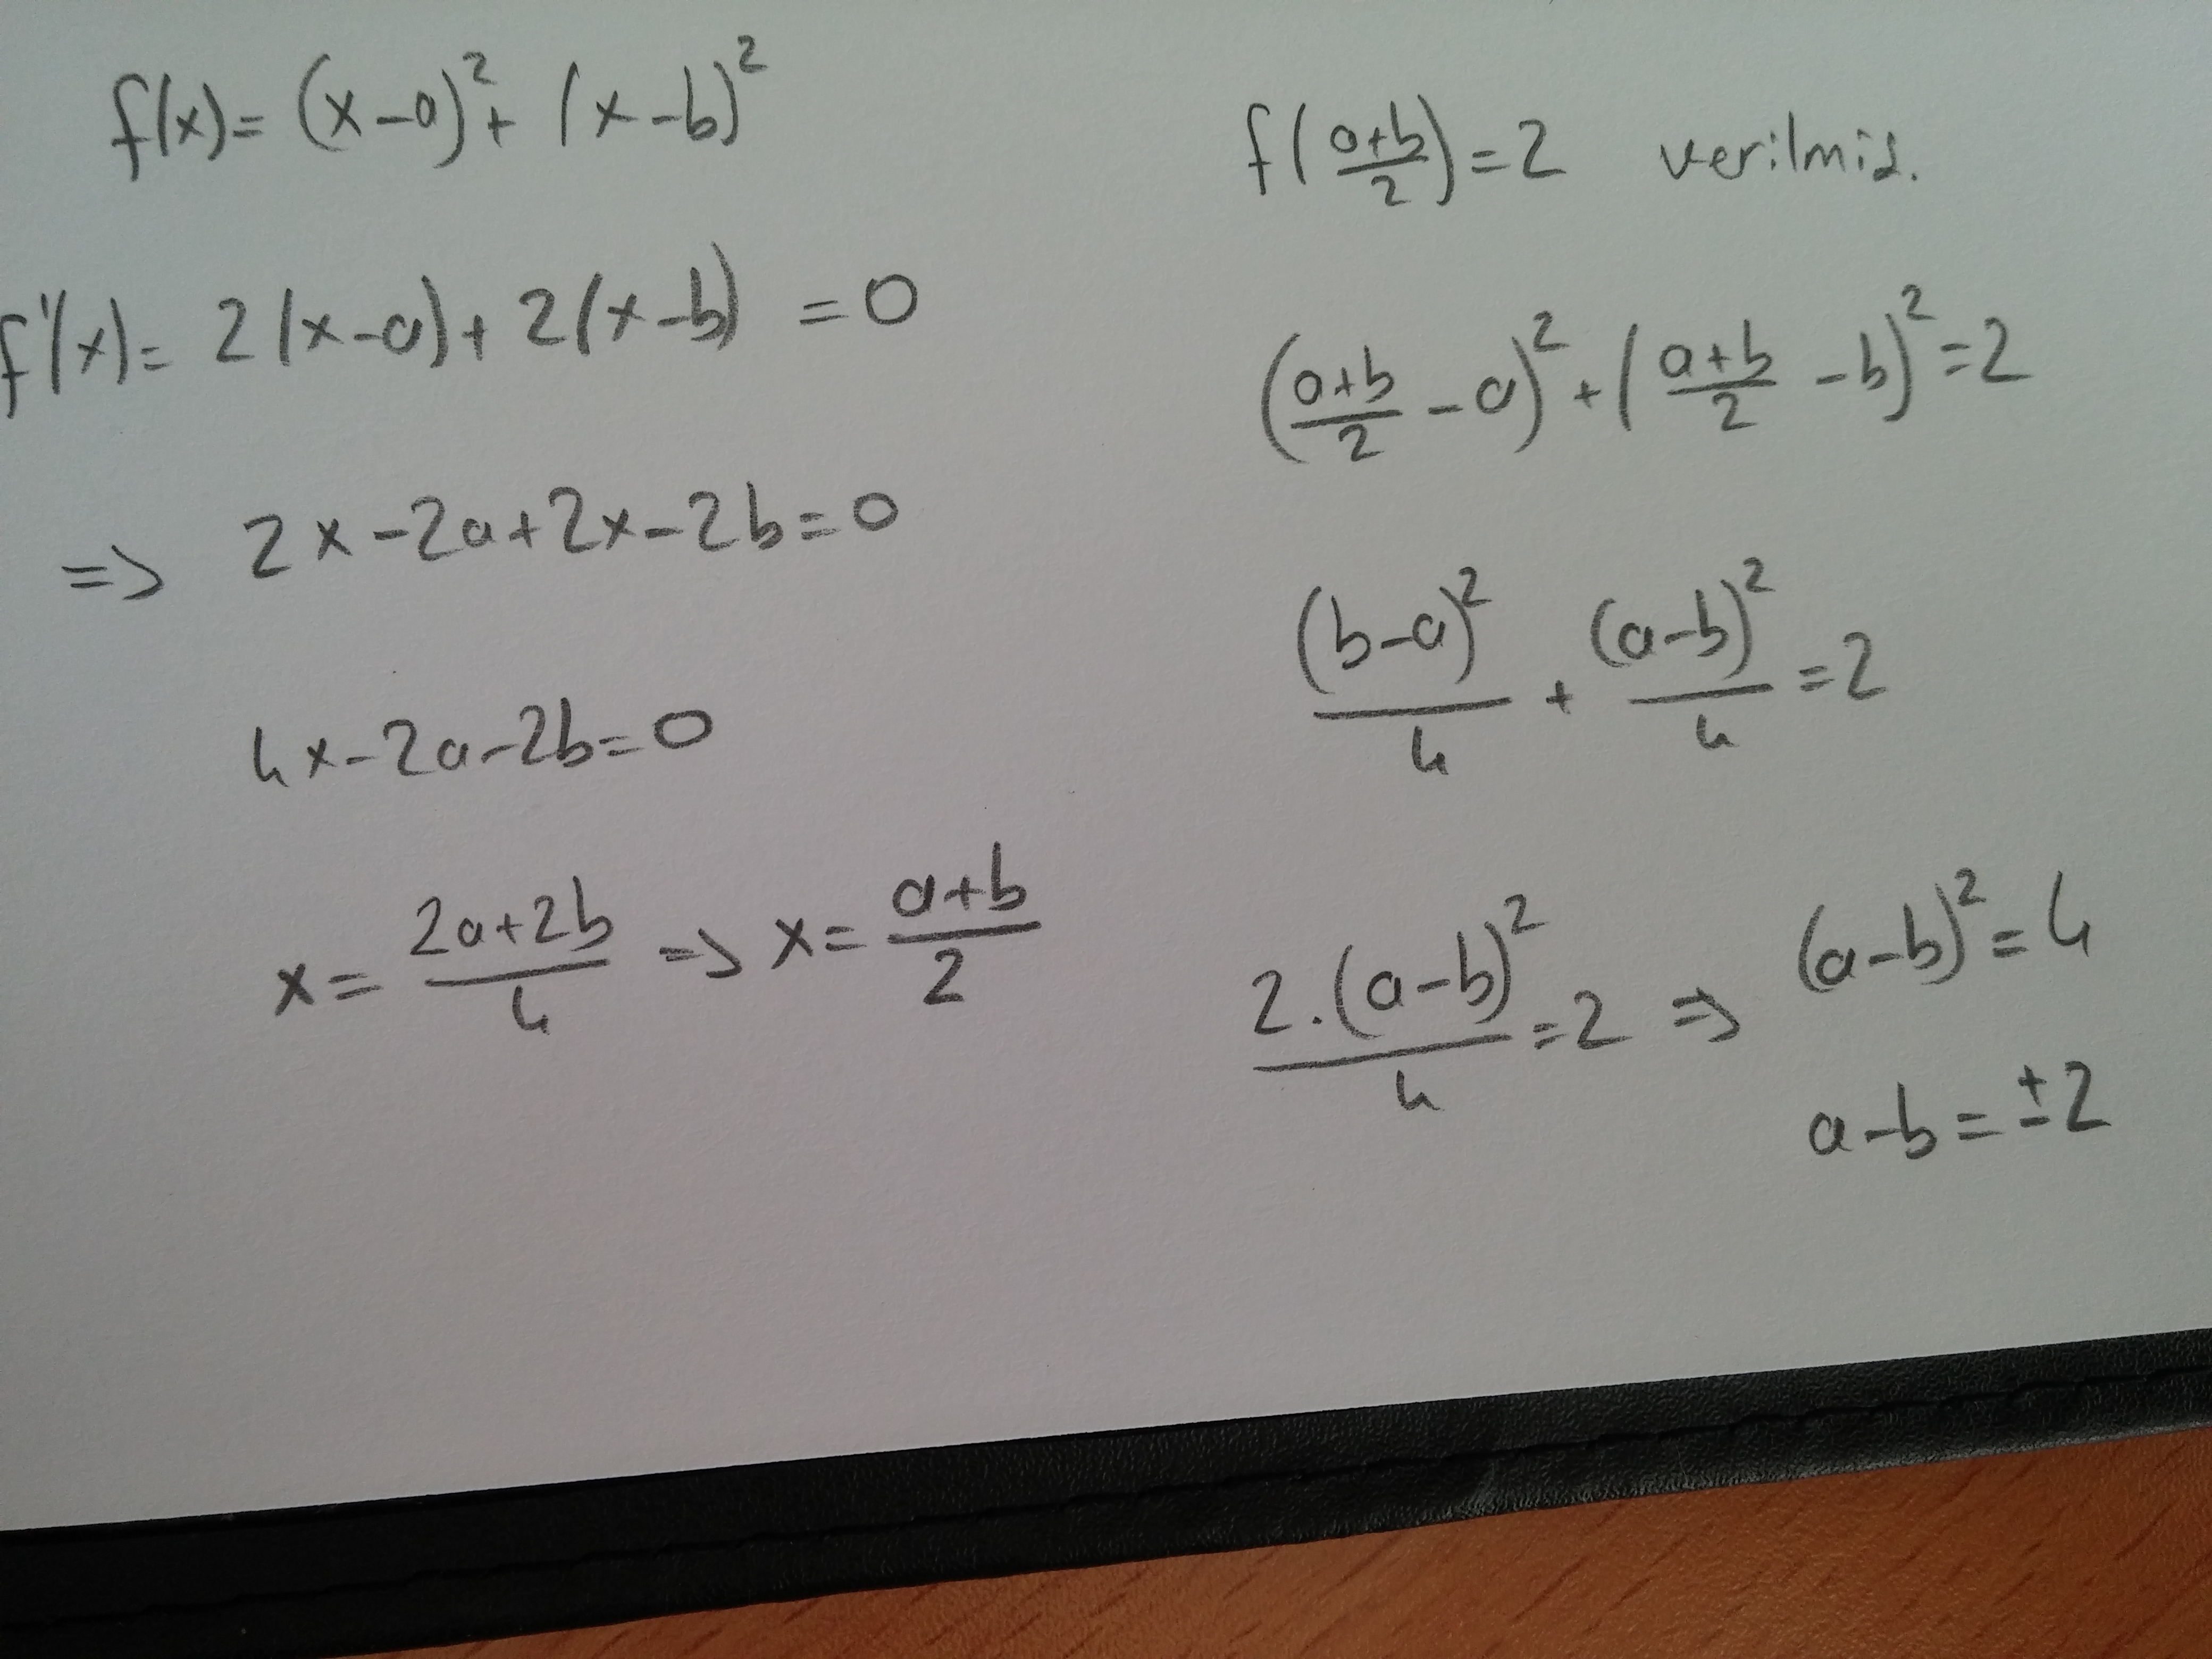 f(x) = (x-a)² + (x-b)²
f'(x) = 2(x-a) + 2(x-b) = 0
=> 2x-2a+2x-2b=0
4x-2a-2b=0
x = (2a+2b)/4 => x = (a+b)/2
f((a+b)/2) = 2 verilmiş.
((a+b)/2 - a)² + ((a+b)/2 - b)² = 2
(b-a)²/4 + (a-b)²/4 = 2
2.(a-b)²/4 = 2 => (a-b)² = 4
a-b = ±2